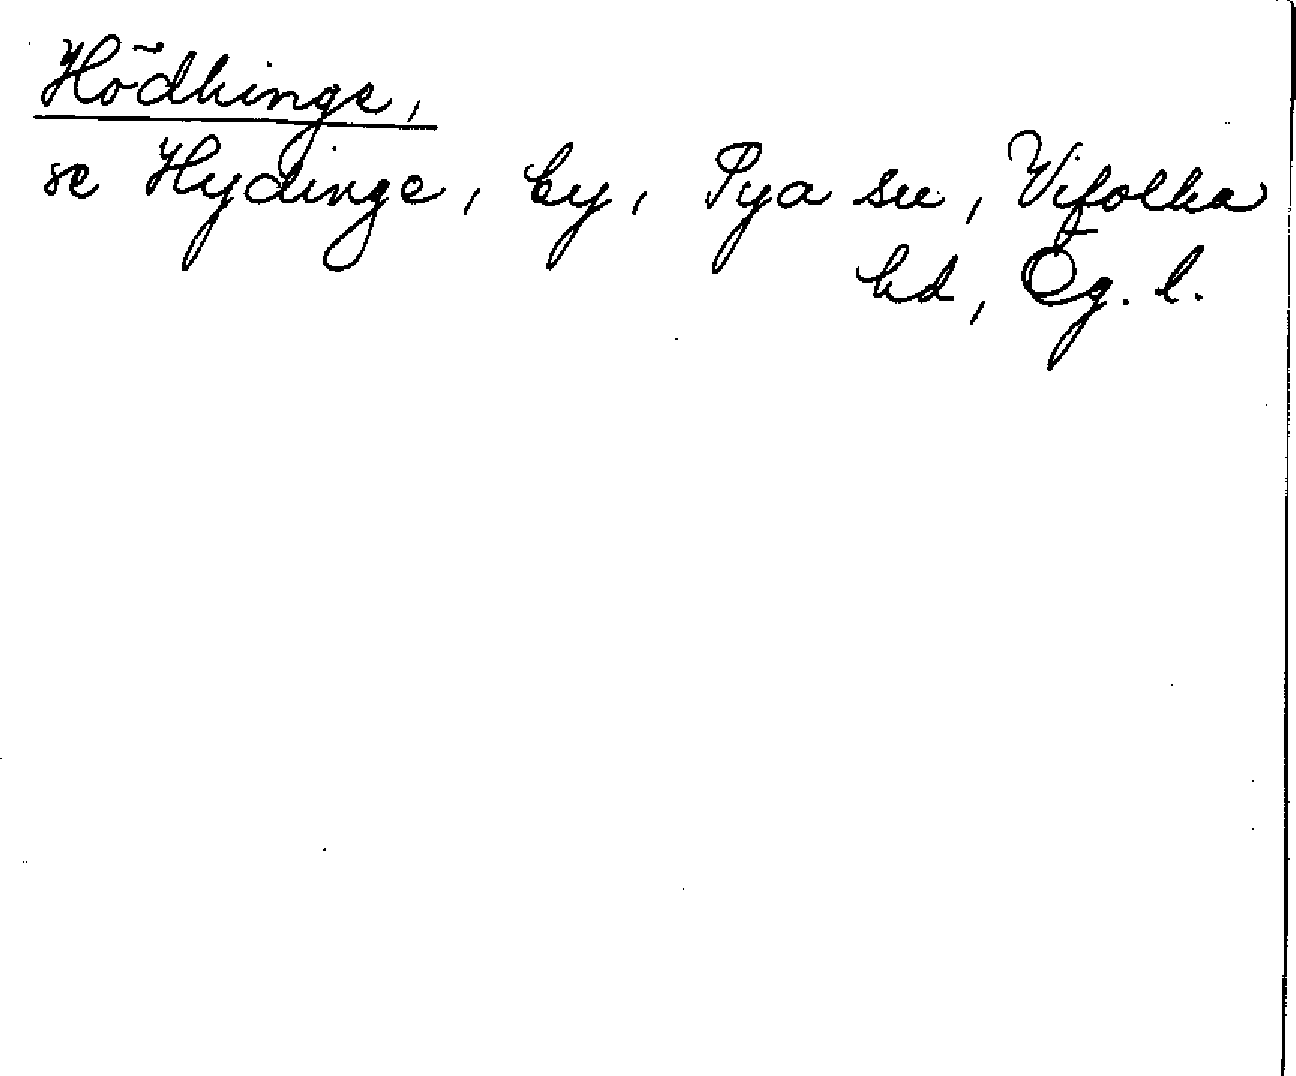 Hödhinge,
se Hydinge, by, Pya sn, Vifolka
hd, Ög. l.